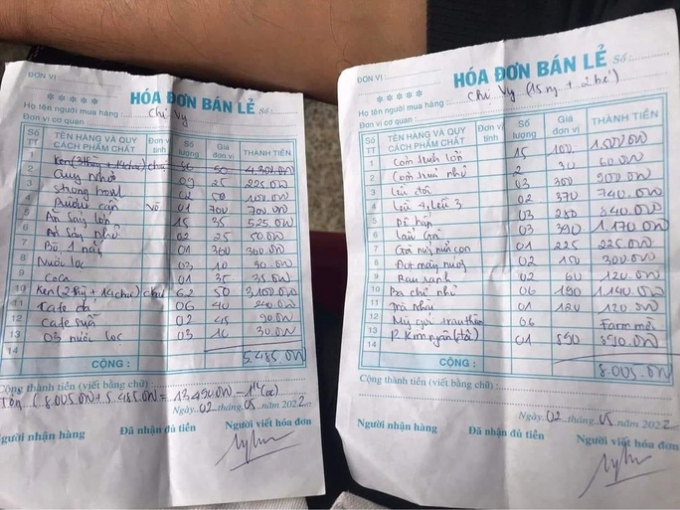 ĐƠN VỊ
HÓA ĐƠN BÁN LẺ
Họ tên người mua hàng: Chị Vy
Đơn vị cơ quan
Số TT TÊN HÀNG VÀ QUY CÁCH PHẨM CHẤT Đơn vị tính Số lượng Giá đơn vị THÀNH TIỀN
1 50
2 Quy nhỏ 09 25 225.000
3 strong bow 02 50 100.000
4 cần 01 700 700.000
5 Ăn sáng lớn 15 35 525.000
6 Ăn sáng nhỏ 02 25 50.000
7 Bò 1 nắng 01 300 300.000
8 Nước lọc 03 10 30.000
9 CoCa 01 35 35.000
10 Ken 62 50 3.100.000
11 Cafe đá 06 40 240.000
12 Cafe sữa 02 45 90.000
13 03 nước lọc 03 10 30.000
14
CỘNG: 5.485.000
Cộng thành tiền (viết bằng chữ):
8.005.000 + 5.485.000 = 13.490.000
Ngày 02 tháng 05 năm 2022
Người nhận hàng Đã nhận đủ tiền Người viết hóa đơn
ĐƠN VỊ
HÓA ĐƠN BÁN LẺ Số:
Họ tên người mua hàng: Chị Vy (15 ng + 2 bé)
Đơn vị cơ quan
Số TT TÊN HÀNG VÀ QUY CÁCH PHẨM CHẤT Đơn vị tính Số lượng Giá đơn vị THÀNH TIỀN
1 lớn 15 100 1.500.000
2 nhỏ 2 30 60.000
3 03 300 900.000
4 Lều 4, lều 3 02 370 740.000
5 hấp 03 280 840.000
6 Lẩu 03 390 1.170.000
7 01 225 225.000
8 02 150 300.000
9 Rau xanh 02 60 120.000
10 Ba chỉ 06 190 1.140.000
11 01 120 120.000
12 Mì gói + rau 06 Farm mời
13 01 890
14
CỘNG: 8.005.000
Cộng thành tiền (viết bằng chữ):
Ngày 02 tháng 05 năm 2022
Người nhận hàng Đã nhận đủ tiền Người viết hóa đơn